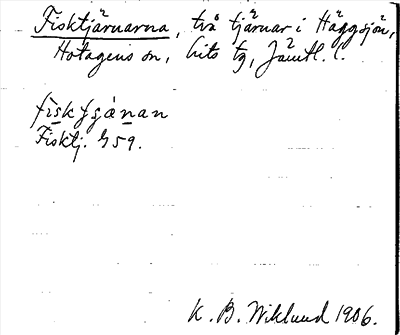 Fisktjärnarna, två tjärnar i Häggsjön,
Hotagens sn, Lits tg, Jämtl. l.
fìskʃɡànan
Fisktj. G59.
K. B. Wiklund 1906.